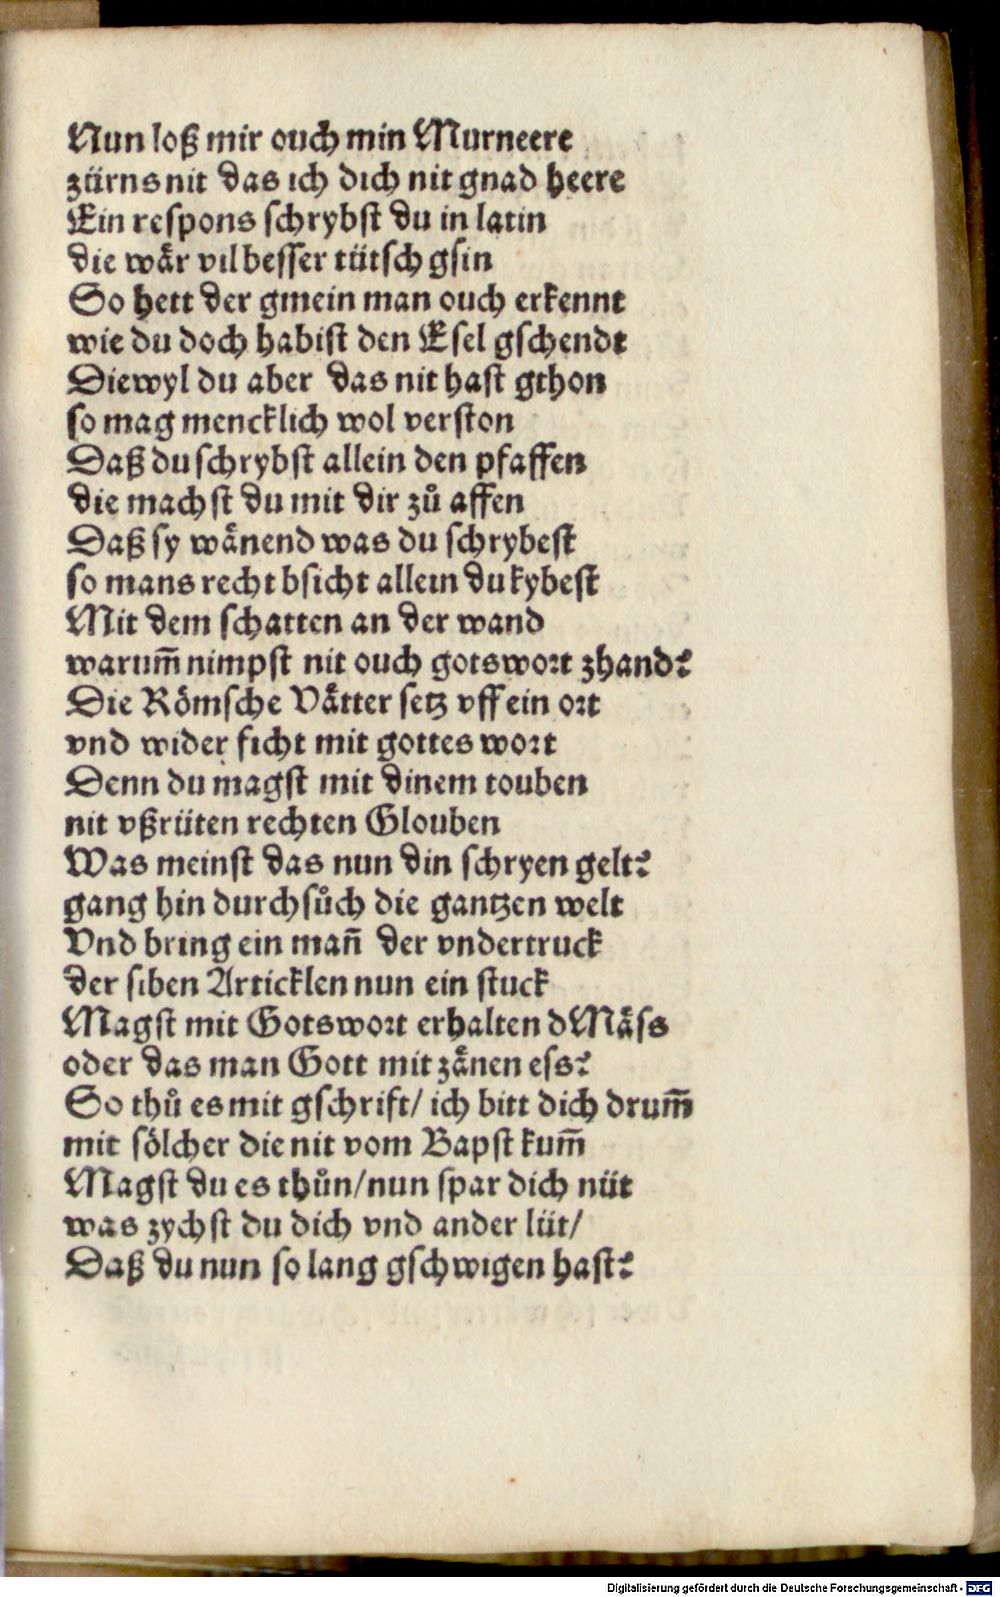 Nun loß mir ouch min Murneere
zürns nit das ich dich nit gnad heere
Ein respons schrybst du in latin
die wår vil besser tütsch gsin
So hett der gmein man ouch erkennt
wie du doch habist den Esel gschendt
Diewyl du aber das nit hast gthon
so mag mencklich wol verston
Daß du schrybst allein den pfaffen
die machst du mit dir zů affen
Daß sy wånend was du schrybest
so mans recht bsicht allein du kybest
Mit dem schatten an der wand
warum̄ nimpst nit ouch gotswort zhand?
Die Rômsche Våtter setz vff ein ort
vnd wider ficht mit gottes wort
Denn du magst mit dinem touben
nit vßrüten rechten Glouben
Was meinst das nun din schryen gelt?
gang hin durchsůch die gantzen welt
Vnd bring ein man̄ der vndertruck
der siben Articklen nun ein stuck
Magst mit Gotswort erhalten dMåss
oder das man Gott mit zånen ess?
So thů es mit gschrift/ ich bitt dich drum̄
mit sôlcher die nit vom Bapst kum̄
Magst du es thůn/nun spar dich nüt
was zychst du dich vnd ander lüt/
Daß du nun so lang gschwigen hast?
Digitalisierung gefördert durch die Deutsche Forschungsgemeinschaft - DFG